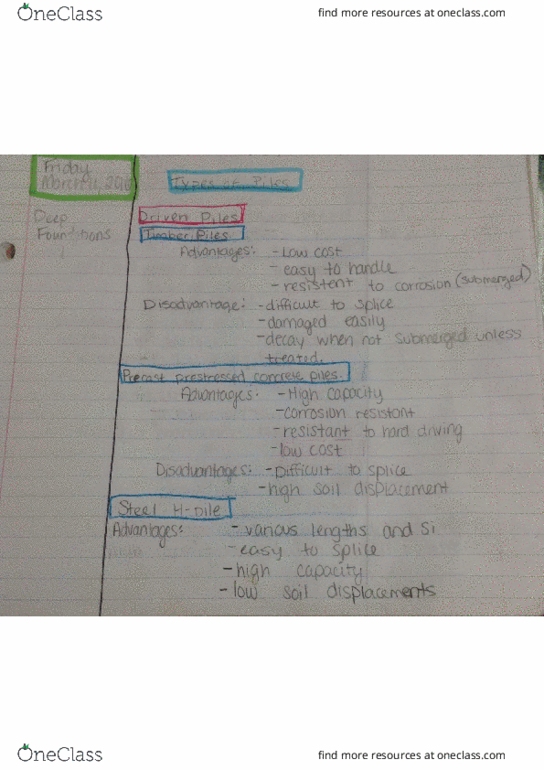 OneClass
find more resources at oneclass.com
Friday
March 11, 2016
Types of Piles
Deep
Foundations
Driven Piles
Timber Piles
Advantages: - Low cost
- easy to handle
- resistent to corrosion (submerged)
Disadvantage: - difficult to splice
- damaged easily
- decay when not submerged unless
treated.
Precast prestressed concrete piles.
Advantages: - High capacity
- corrosion resistant
- resistant to hard driving
- low cost
Disadvantages: - Difficult to splice
- high soil displacement
Steel H-pile
Advantages: - various lengths and Si
- easy to splice
- high capacity
- low soil displacements
OneClass
find more resources at oneclass.com